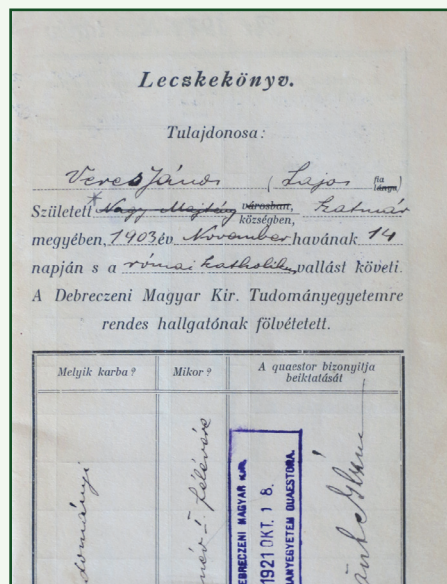 Leczkekönyv.
Tulajdonosa:
Veres János (Lajos fia lánya
Született Nagy Majtény városban, községben, Szatmár
megyében, 1903 év November havának 14
napján s a római katholikus vallást követi.
A Debreczeni Magyar Kir. Tudományegyetemre
rendes hallgatónak fölvétetett.
Melyik karba? Mikor? A quaestor bizonyitja beiktatását
félévére
DEBRECZENI MAGYAR KIR.
1921 OKT. 18.